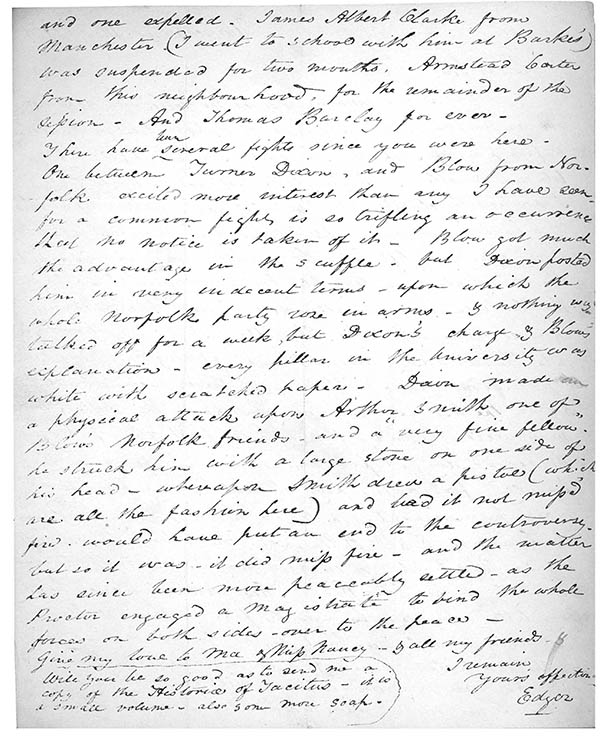 and one expelled - James Albert Clarke from
Manchester (I went to school with him at Burke's)
was suspended for two months, Armstead Carter
from this neighbourhood, for the remainder of the
session - And Thomas Barclay for ever -
There have been several fights since you were here -
One between Turner Dixon, and Blow from Nor-
folk excited more interest than any I have seen -
for a common fight is so trifling an occurrence
that no notice is taken of it - Blow got much
the advantage in the scuffle - but Dixon posted
him in very indecent terms - upon which the
whole Norfolk party rose in arms - & nothing was
talked off for a week, but Dixon's charge & Blow's
explanation - every pillar in the University was
white with scratched paper - Dixon made an
a physical attack upon Arthur Smith one of
Blow's Norfolk friends - and a "very fine fellow" -
he struck him with a large stone on one side of
his head - whereupon Smith drew a pistol (which
are all the fashion here) and had it not miss'd
fire - would have put an end to the controversy -
but so it was - it did miss fire - and the matter
has since been more peaceably settled - as the
Proctor engaged a magistrate to bind the whole
forces on both sides - over to the peace -
Give my love to Ma & Miss Nancy - & all my friends - &
I remain
Yours affection-
Edgar
Will you be so good as to send me a
copy of the Historiæ of Tacitus - it is
a small volume - also some more soap -